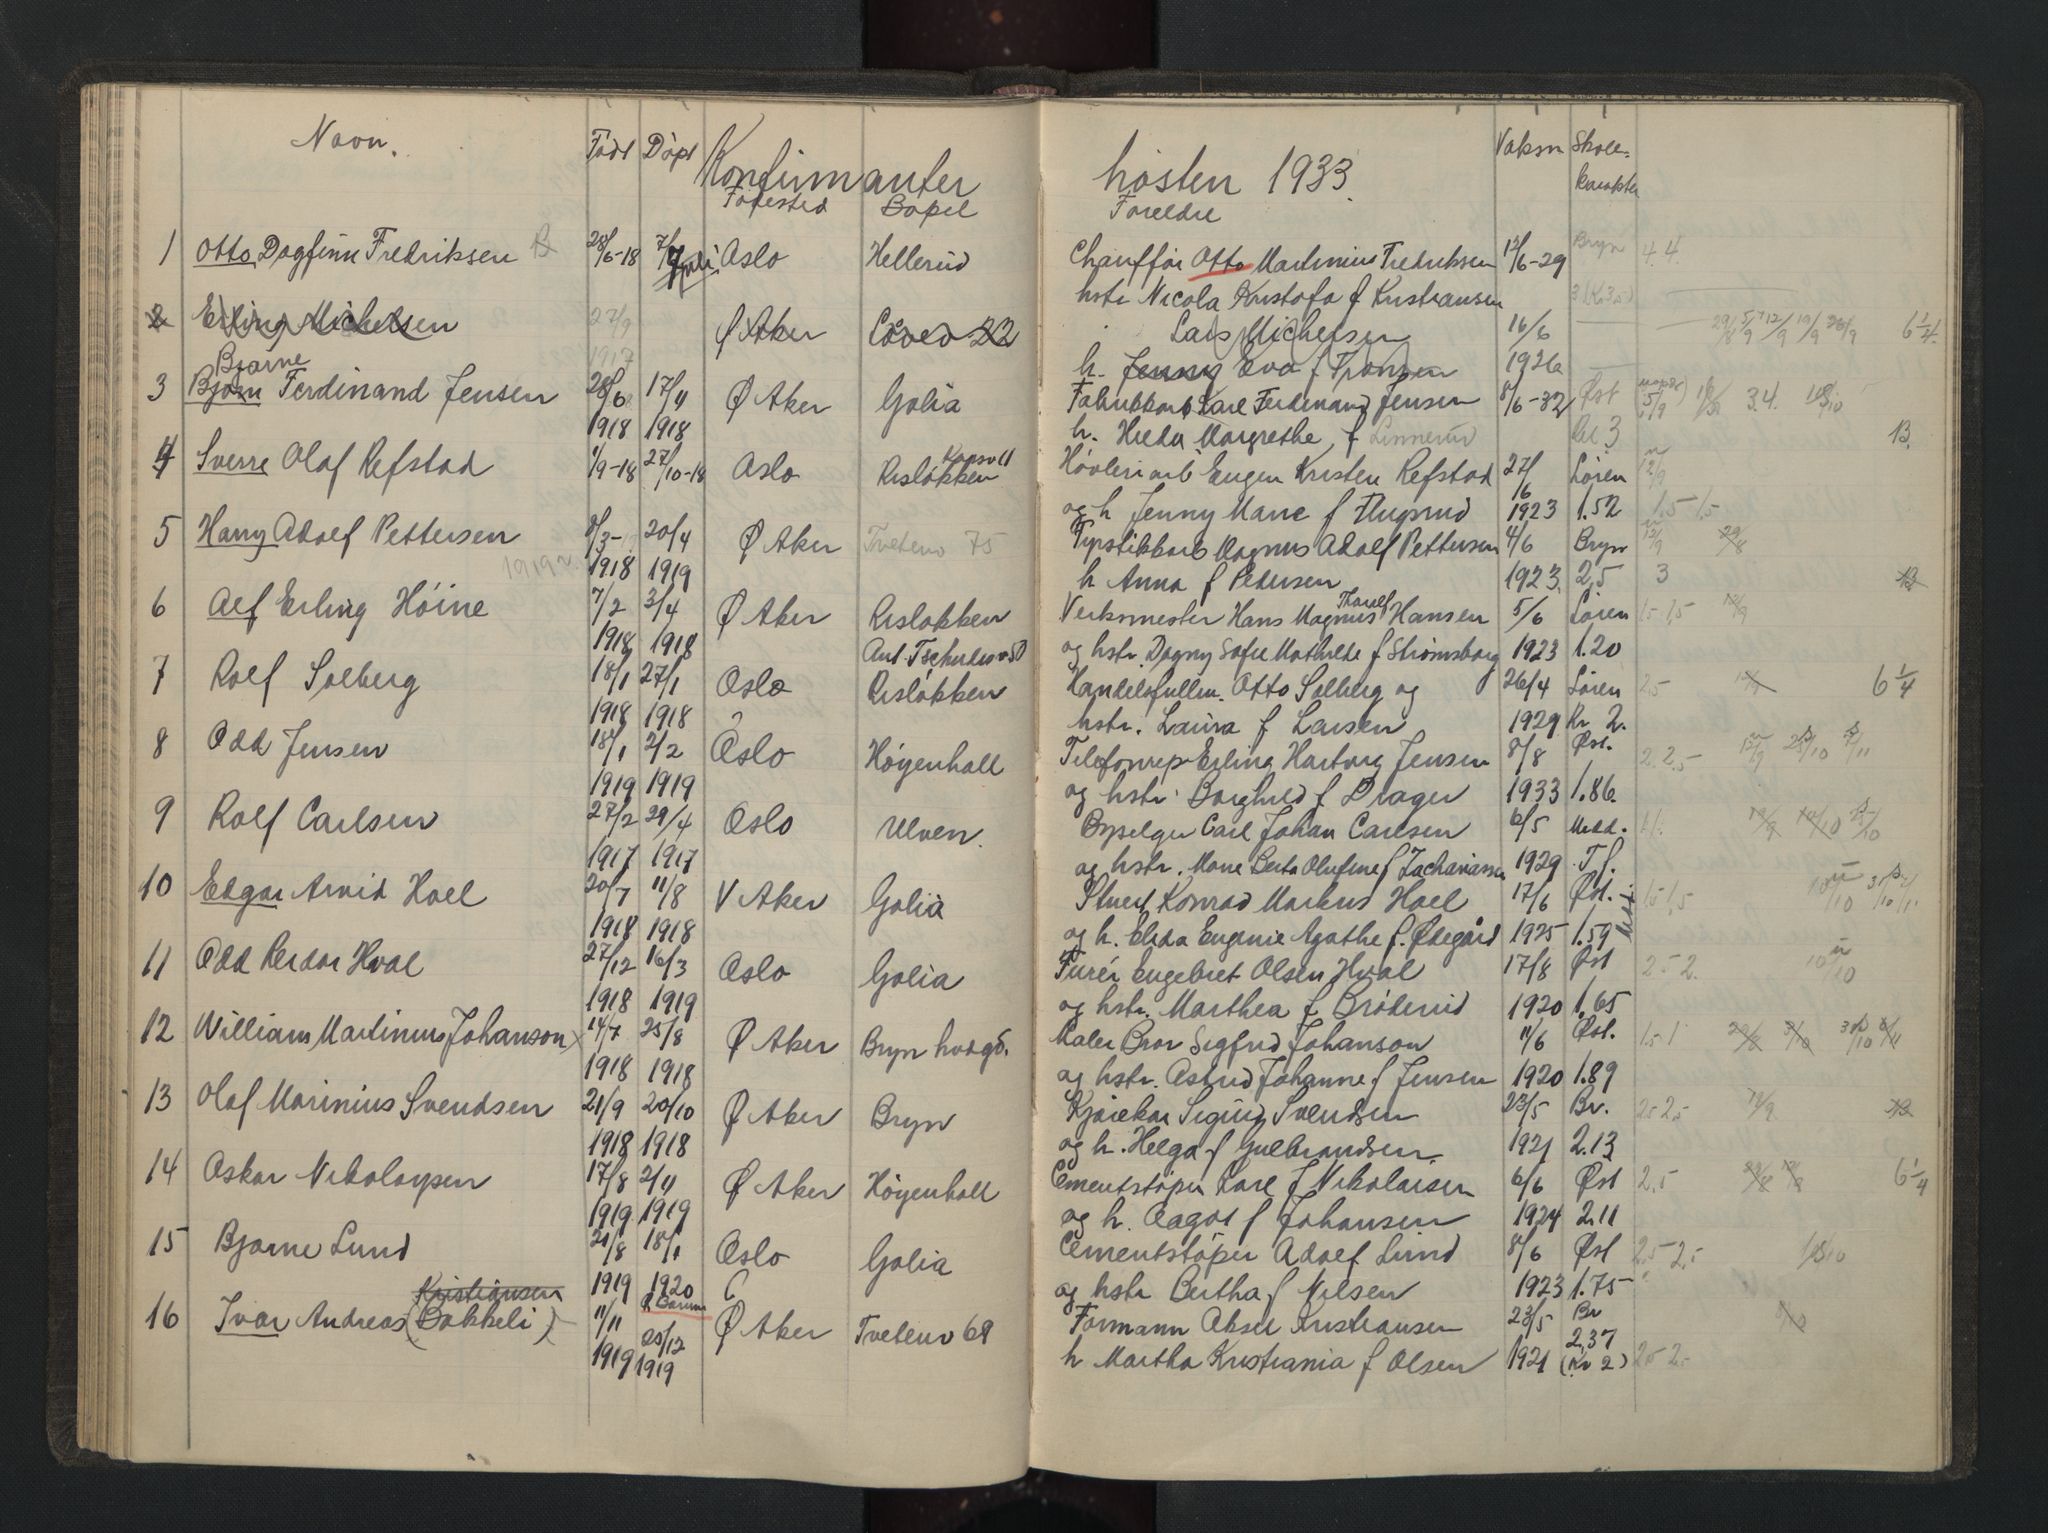 Navn. Født Døpt Konfirmanter høsten 1933. Vaksn Skole-
Fødested Bopel Foreldre karakter
1 Otto Dagfinn Fredriksen 28/6-18 7/7 juli Oslo Hellerud Chauffør Otto Martinius Fredriksen 12/6-29 Bryn 4.4.
hstr Nicola Kristofa f Kristiansen
2 Erling Michelsen 27/9 Ø Aker 22 Lars Michelsen 16/6 29/8 5/9 12/9 19/9 26/9 6 1/4
1917 h. Jenny Eva f 1926
Bjarne
3 Bjørn Ferdinand Jensen 28/6 17/11 Ø Aker Golia Fabrikkarb Karl Ferdinand Jensen 8/6-32 Øst 3.4.
1918 1918 h. Hilda Margrethe f Linnerud 3 13.
4 Sverre Olaf Refstad 1/9-18 27/10-18 Oslo Risløkken Høvleriarb Eugen Kristen Refstad 27/6 Løren 12/9
og h Jenny Marie f 1923 1.52 1.5-1.5
5 Harry Adolf Pettersen 8/3- 20/4 Ø Aker Tvetenv 75 Fyrstikkarb Magnus Adolf Pettersen 4/6 Bryn 12/9 29/8
1919 1918 1919 h Anna f Pedersen 1923 2,5 3 13
6 Alf Erling Høine 7/2 3/4 Ø Aker Risløkken Verksmester Hans Magnus Thoralf Hansen 5/6 Løren 1.5-1,5
1918 1918 og hstr. Dagny Sofie Mathilde f Strømsborg 1923 1.20
Ant. Tschudisv 50
7 Rolf Solberg 18/1 27/1 Oslo Risløkken Handelsfullm. Otto Solberg og 26/4 Løren 2,5 6 1/4
1918 1918 hstr. Laura f Larsen 1929 Kr 2.
8 Odd Jensen 18/1 2/2 Oslo Høyenhall Telefonrep Erling Hartvig Jensen 8/8 Øst. 2. 2.5
1919 1919 og hstr. Borghild f Drager 1933 1.86.
9 Rolf Carlsen 27/2 29/4 Oslo Ulven. Carl Johan Carlsen 6/5 Midd.
1917 1917 og hstr. Marie Berta Olufine f Zachariassen 1929 T f.
10 Edgar Arvid Hoel 20/7 11/8 V Aker Golia Stuert Konrad Markus Hoel 17/6 Øst. 1.5 1,5
1918 1918 og h. Elida Eugenie Agathe f. Ødegård 1925 1.59
11 Odd Reidar Hval 27/12 16/3 Oslo Golia Furér Engebret Olsen Hval 17/8 Øst 2.5 2.
1918 1919 og hstr. Marthea f Brøderud 1920 1.65
12 William Martinius Johanson 14/7 25/8 Ø Aker Bryn hvdgd. Maler Bror Sigfrid Johanson 11/6 Øst. 1.5 1
1918 1918 og hstr. Astrid Johanne f Jensen 1920 1.89
13 Olaf Marinius Svendsen 21/9 20/10 Ø Aker Bryn Kjørekar Sigurd Svendsen 23/5 Br. 2.5 2,5 19/9 13
1918 1918 og h. Helga f Gulbrandsen 1921 2.13
14 Oskar Nikolaysen 17/8 2/11 Ø Aker Høyenhall Cementstøper Karl J Nikolaisen 6/6 Øst 2,5 6 1/4
1919 1919 og h. Aagot f Johansen 1924 2.11
15 Bjarne Lund 21/8 18/1 Oslo Golia Cementstøper Adolf Lund 8/6 Øst 2,5-2,5
1919 1920 og hstr Bertha f Nilsen 1923 1.75
Kristiansen
16 Ivar Andreas (Bakkeli) 11/11 Bærum 20/12 Ø Aker Tvetenv 69 Formann Aksel Kristiansen 23/5 Br
1919 1919 h Martha Kristiania f Olsen 1921 2,37 (Kr 2) 2.5 2.